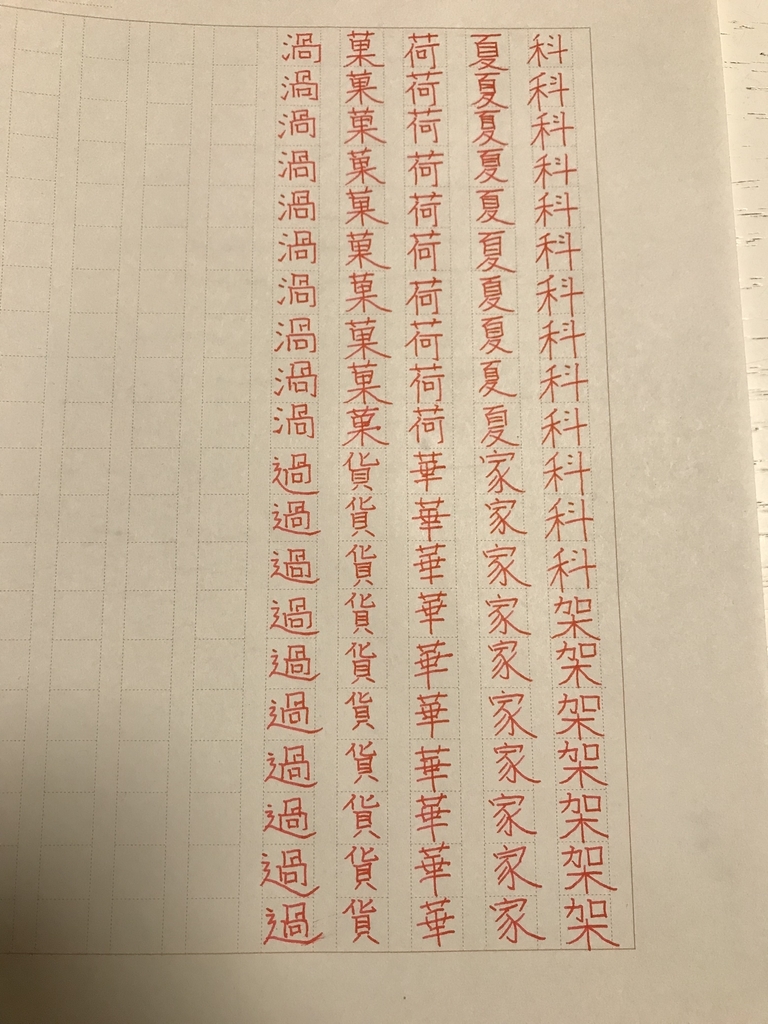 科科科科科科科科科科科科科架架架架架架架
夏夏夏夏夏夏夏夏夏夏家家家家家家家家家家
荷荷荷荷荷荷荷荷荷荷華華華華華華華華華華
菓菓菓菓菓菓菓菓菓菓貨貨貨貨貨貨貨貨貨貨
渦渦渦渦渦渦渦渦渦渦過過過過過過過過過過